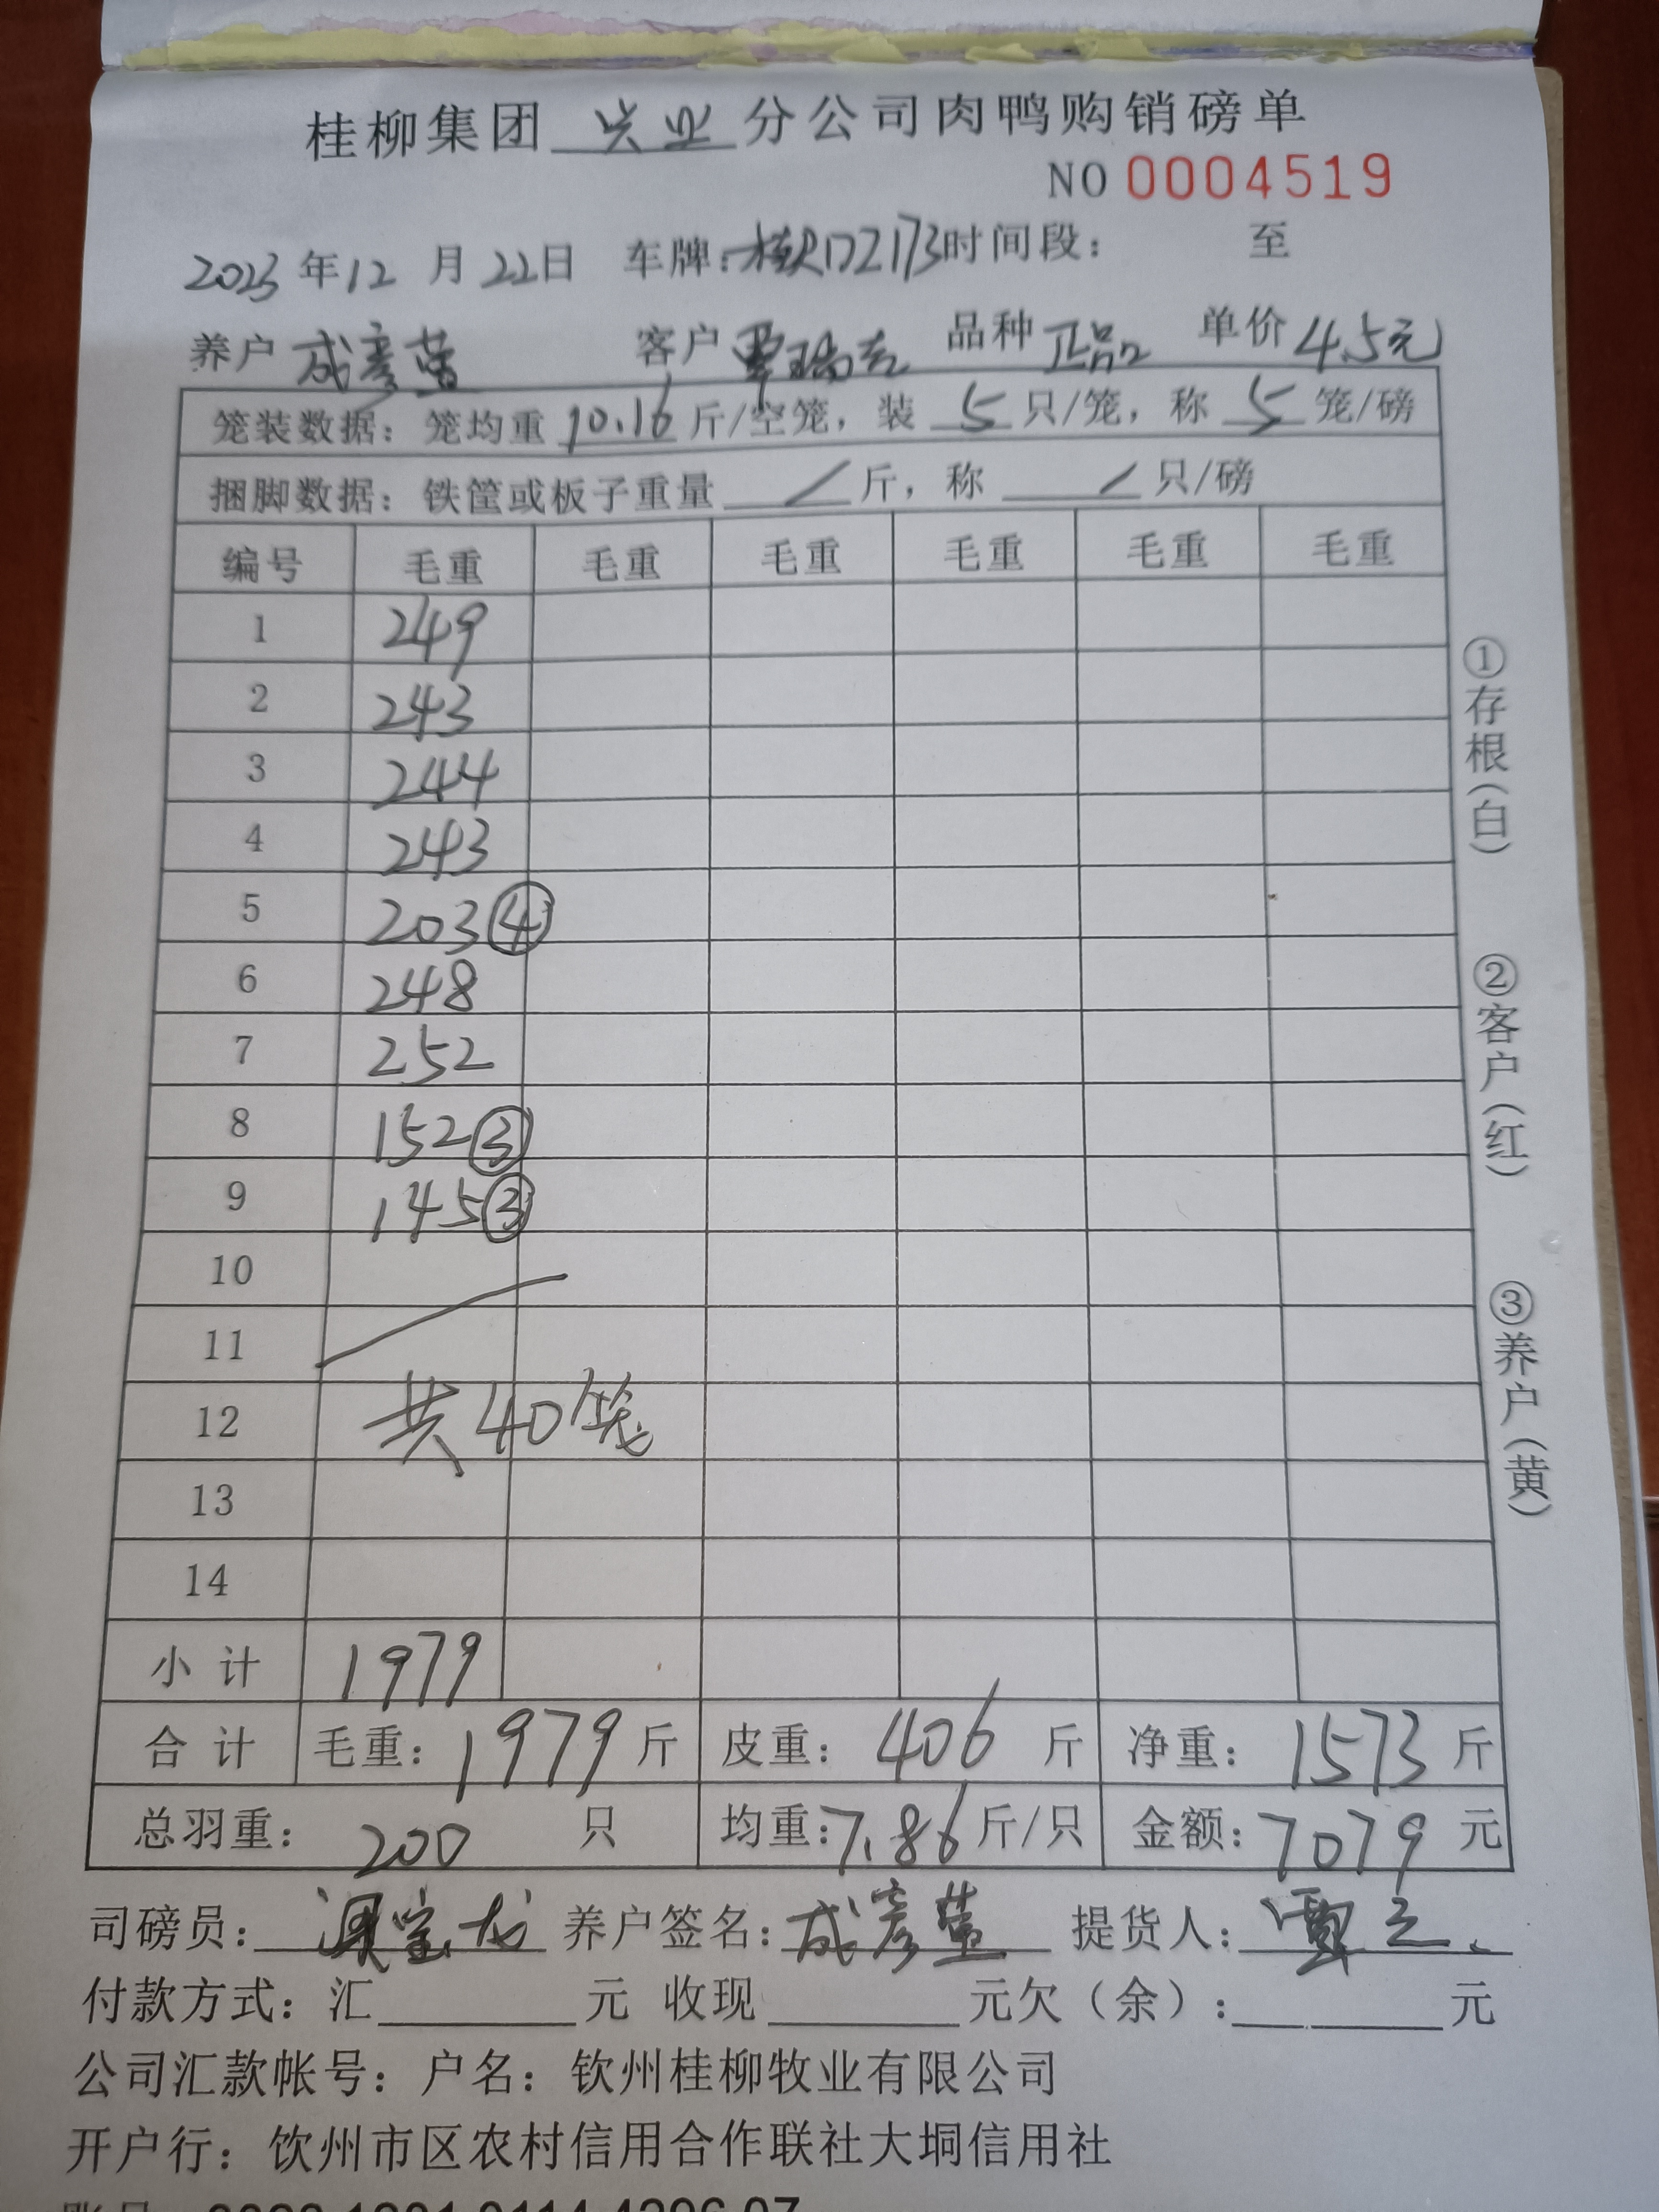 桂柳集团 兴业 分公司肉鸭购销磅单
NO 0004519
2023年12月22日 车牌:桂RD2173 时间段: 至
养户 成彦萤 客户 覃瑞 品种 正品 单价 4.5元
笼装数据: 笼均重 10.16 斤/空笼, 装 5 只/笼, 称 5 笼/磅
捆脚数据: 铁筐或板子重量 / 斤, 称 / 只/磅
编号 毛重 毛重 毛重 毛重 毛重 毛重
1 249
2 243
3 244
4 243
5 203④
6 248
7 252
8 152③
9 145③
10
11
12 共40笼
13
14
小计 1979
合计 毛重: 1979 斤 皮重: 406 斤 净重: 1573 斤
总羽重: 200 只 均重: 7.86 斤/只 金额: 7079 元
①存根(白)
②客户(红)
③养户(黄)
司磅员: 宝龙 养户签名: 成彦萤 提货人: 覃
付款方式: 汇 元 收现 元欠(余): 元
公司汇款帐号: 户名: 钦州桂柳牧业有限公司
开户行: 饮州市区农村信用合作联社大垌信用社